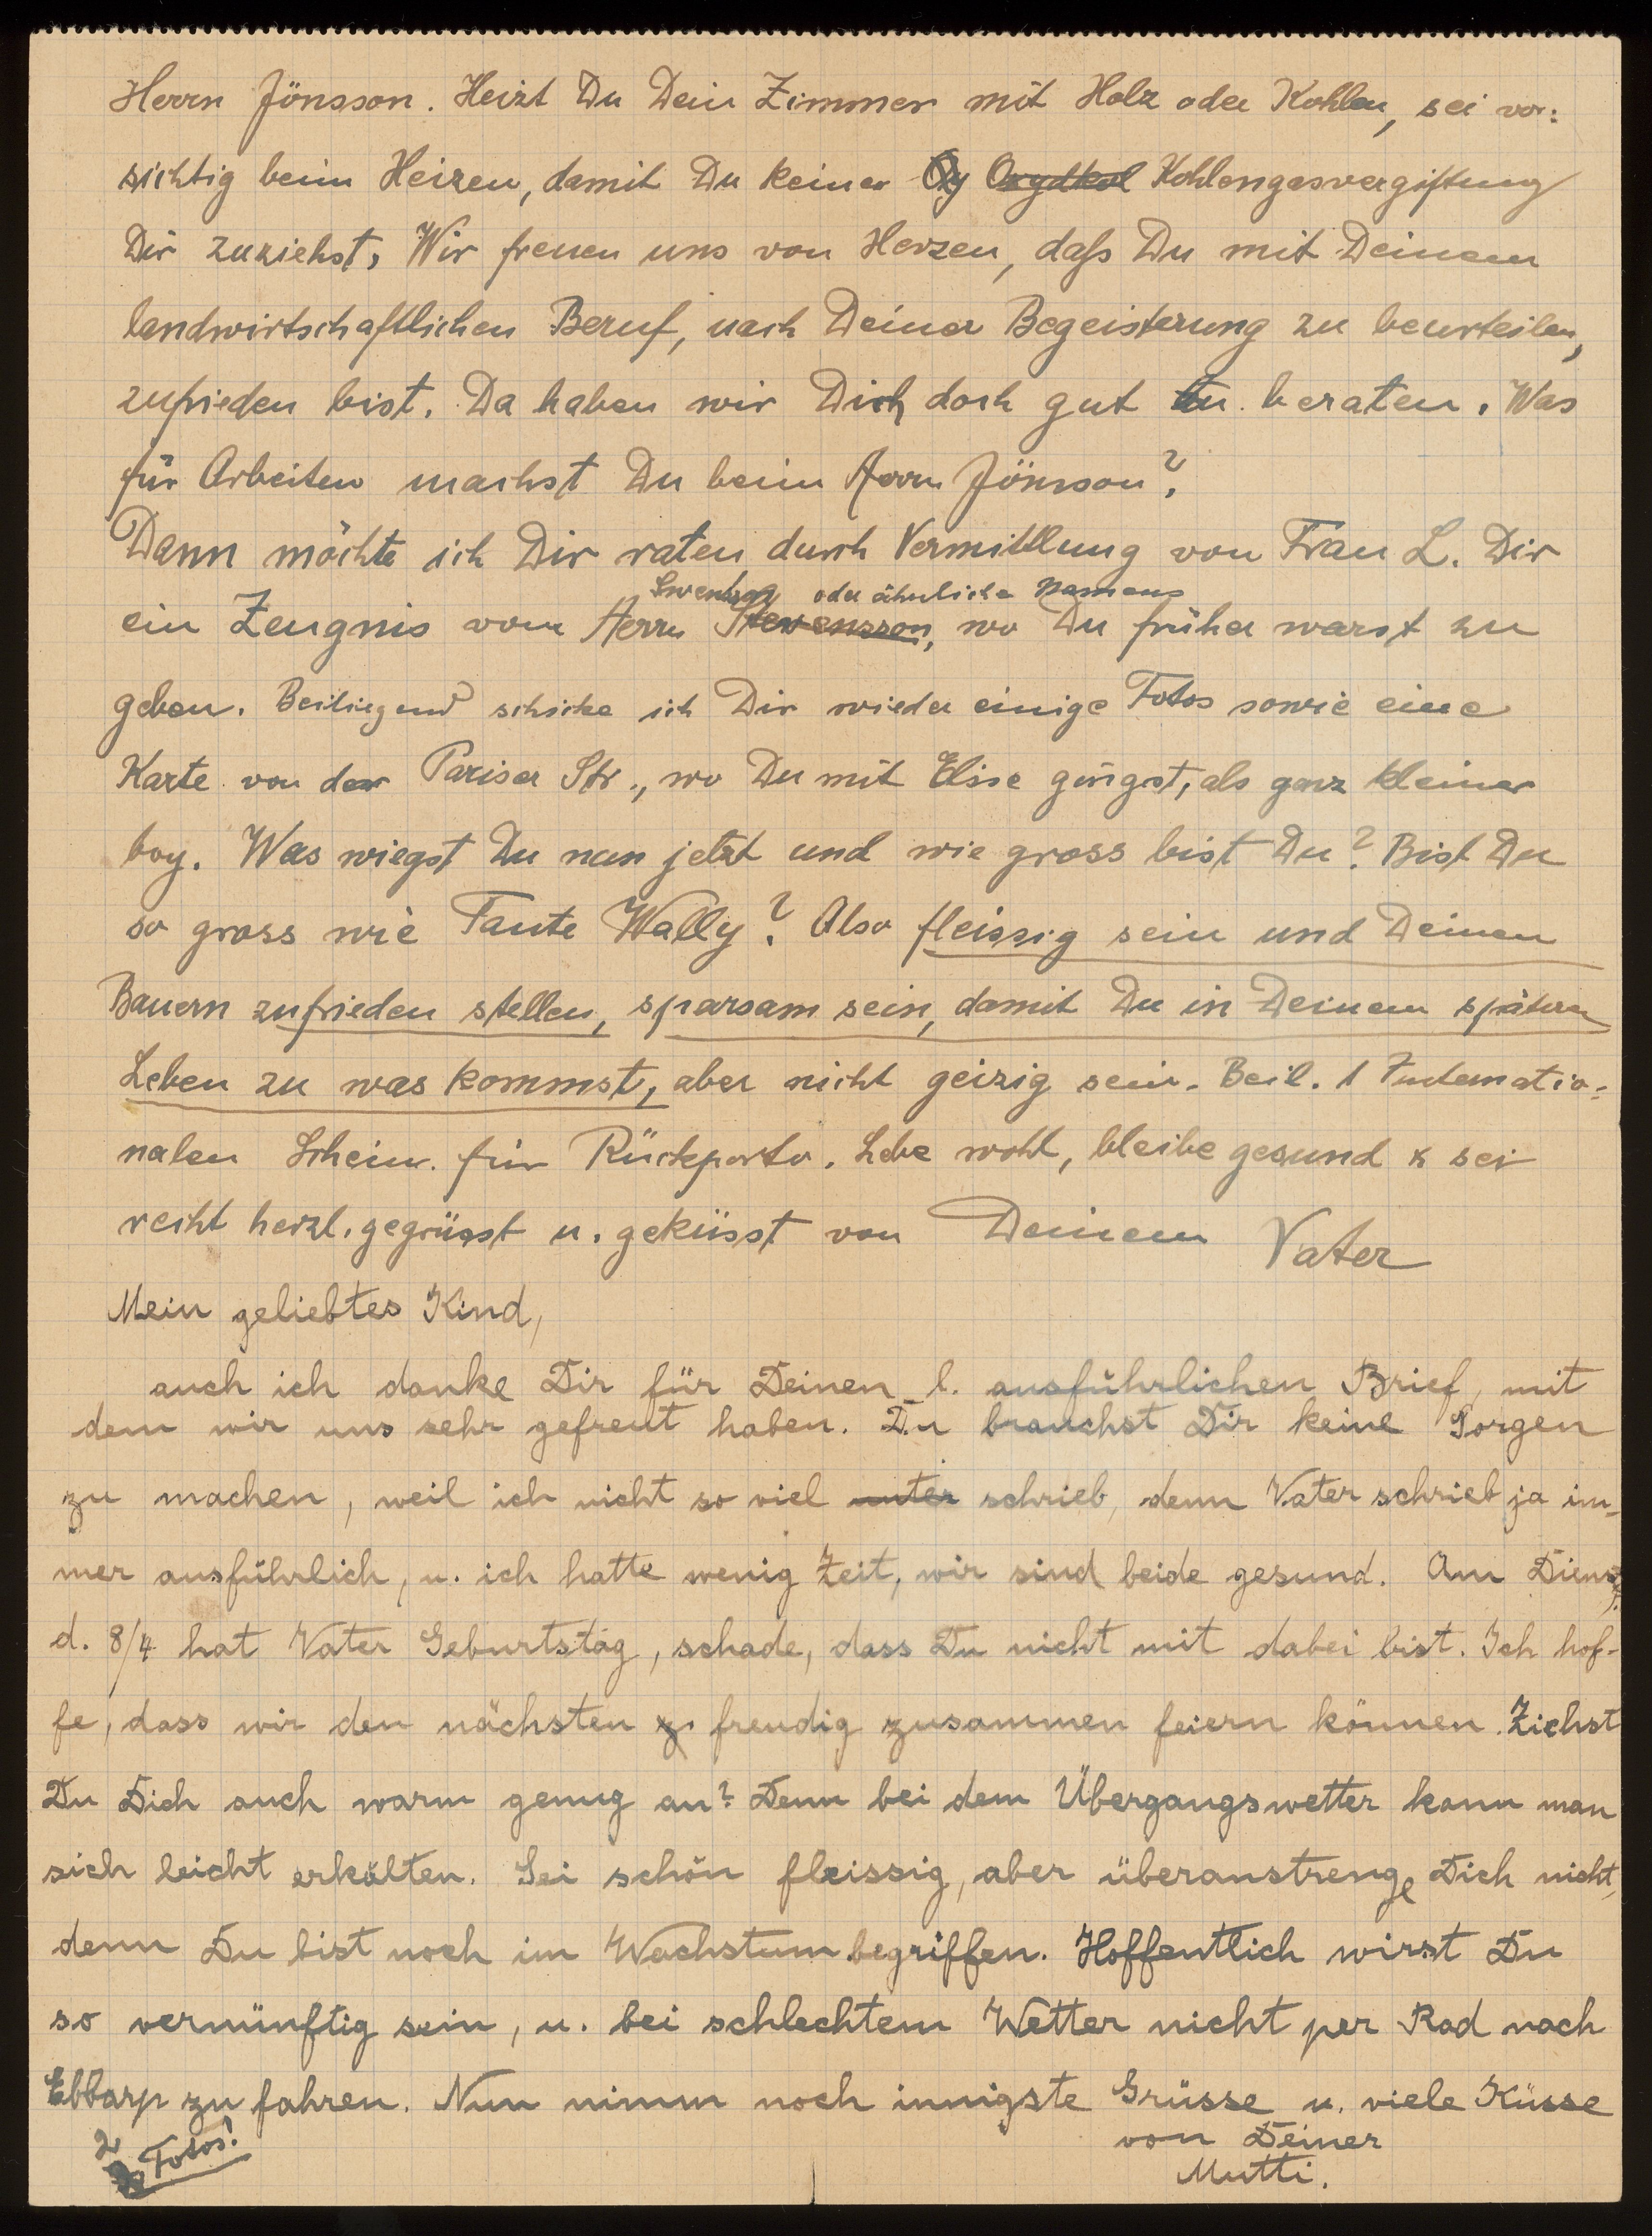 Herrn Jönsson. Heizt Du Dein Zimmer mit Holz oder Kohlen, sei vor:
sichtig beim Heizen, damit Du keiner Oxy Oxydkol Kohlengasvergiftung
Dir zuziehst. Wir freuen uns von Herzen, daß Du mit Deinem
landwirtschaftlichen Beruf, nach Deiner Begeisterung zu beurteilen,
zufrieden bist. Da haben wir Dich doch gut beraten. Was
für Arbeiten machst Du beim Herrn Jönsson?
Dann möchte ich Dir raten durch Vermittlung von Frau L. Dir
oder ähnliche Namens
ein Zeugnis vom Herrn Stevensson, wo Du früher warst zu
geben. Beiliegend schicke ich Dir wieder einige Fotos sowie eine
Karte von der Pariser Str., wo Du mit Elise gingst, als ganz kleiner
boy. Was wiegst Du nun jetzt und wie gross bist Du? Bist Du
so gross wie Tante Wally? Also fleissig sein und Deinen
Bauern zufrieden stellen, sparsam sein, damit Du in Deinem spätern
Leben zu was kommst, aber nicht geizig sein. Beil. 1 Internatio-
nalen Schein für Rückporto. Lebe wohl, bleibe gesund & sei
recht herzl. gegrüsst u. geküsst von Deinem Vater
Mein geliebtes Kind,
auch ich danke Dir für Deinen l. ausführlichen Brief, mit
dem wir uns sehr gefreut haben. Du brauchst Dir keine Sorgen
zu machen, weil ich nicht so viel unter schrieb, denn Vater schrieb ja im-
mer ausführlich, u. ich hatte wenig Zeit, wir sind beide gesund. Am Dienst.
d. 8/4 hat Vater Geburtstag, schade, dass Du nicht mit dabei bist. Ich hof-
fe, dass wir den nächsten z. freudig zusammen feiern können. Ziehst
Du Dich auch warm genug an? Denn bei dem Übergangswetter kann man
sich leicht erkälten. Sei schön fleissig, aber überanstrenge Dich nicht,
denn Du bist noch im Wachstum begriffen. Hoffentlich wirst Du
so vernünftig sein, u. bei schlechtem Wetter nicht per Rad nach
Ebbarp zu fahren. Nun nimm noch innigste Grüsse u. viele Küsse
von Deiner
Mutti.
2 Fotos!